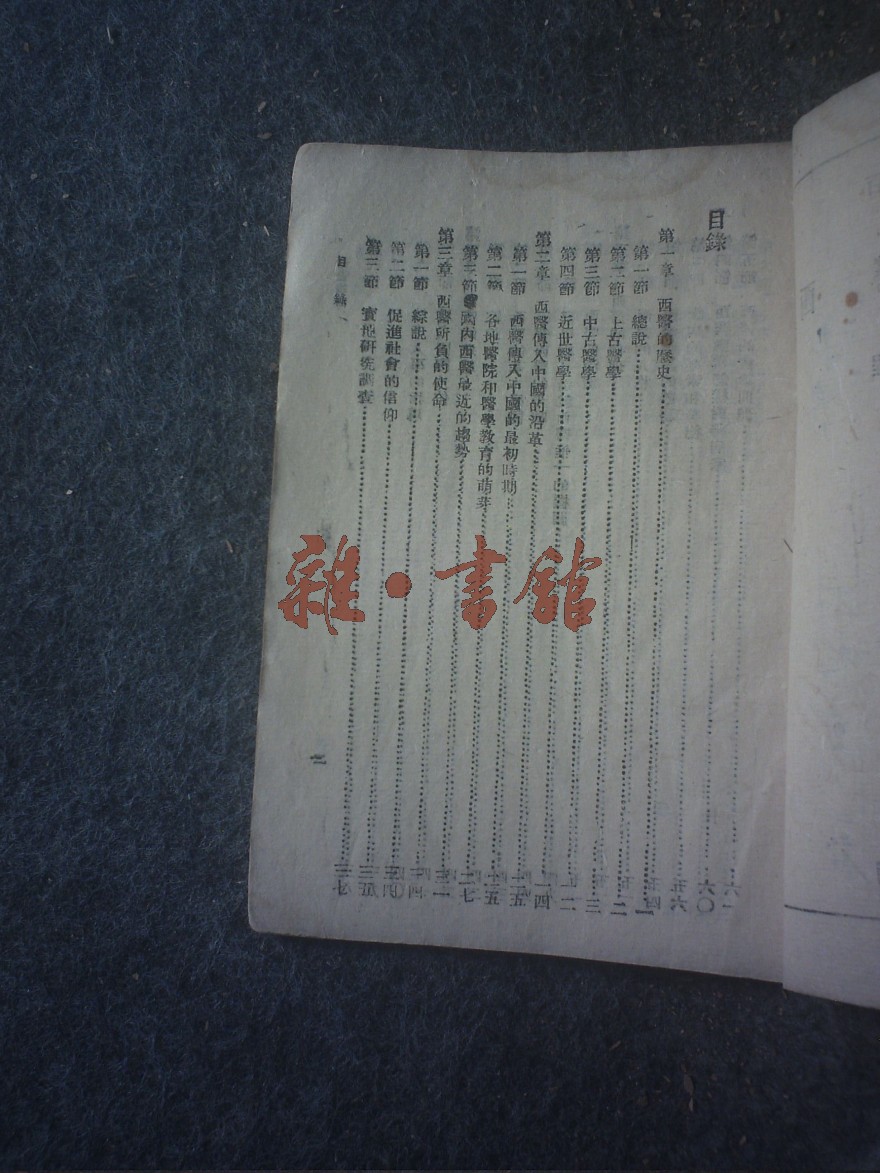 目錄
第一章 西醫的歷史
第一節 總說……一
第二節 上古醫學……二
第三節 中古醫學……三
第四節 近世醫學
第二章 西醫傳入中國的沿革……一四
第一節 西醫傳入中國的最初時期
第二節 各地醫院和醫學教育的萌芽
第三節 國內西醫最近的趨勢
第三章 西醫所負的使命
第一節 綜說
第二節 促進社會的信仰
第三節 實地研究調查
目錄
雜·書館